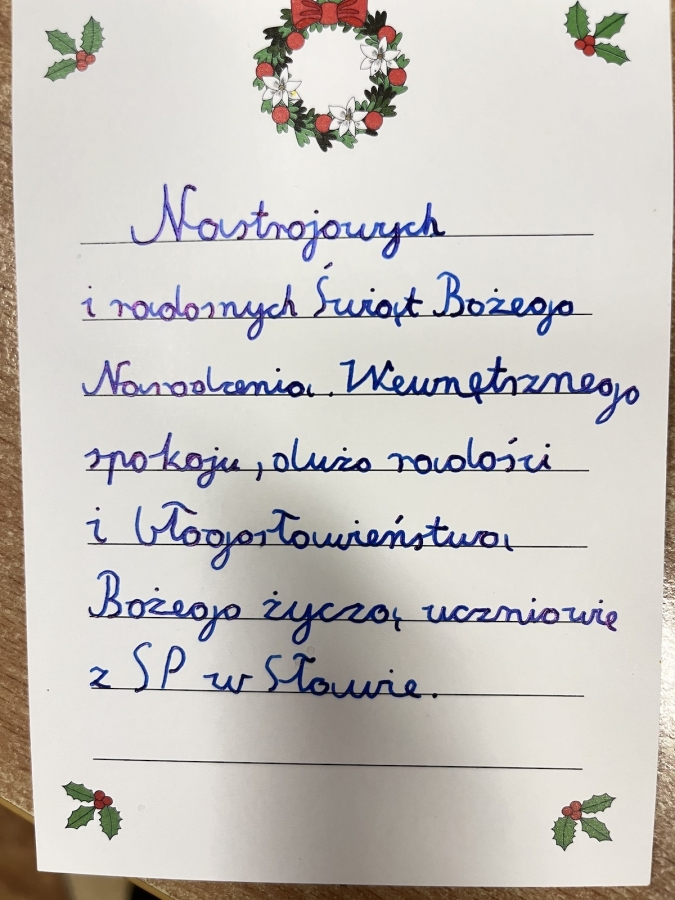 Nastrojowych
i radosnych Świąt Bożego
Narodzenia. Wewnętrznego
spokoju, dużo radości
i błogosławieństwa
Bożego życzą uczniowie
z SP w Sławie.